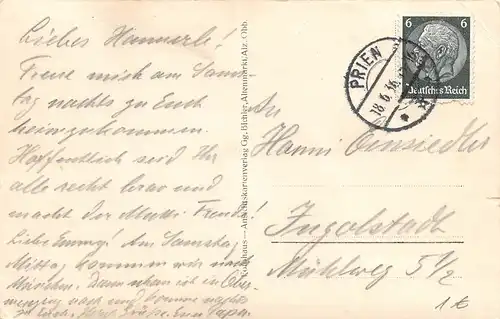 Liebes Hannerle!
Freue mich am Sams-
tag nachts zu Euch
heimzukommen.
Hoffentlich seid Ihr
alle recht brav und
macht der Mutti Freude!
Liebe Emmy! Am Samstag
Mittag kommen wir nach
München. Dann
nach und komme nachts
zu Euch. Papa
Verlag Gg. Bichler, Altenmarkt/Alz, Obb.
PRIEN
18.6.36
6 6
Deutsches Reich
An
Hanni Einsiedler
Ingolstadt
Mühlweg 5 1/2
1€